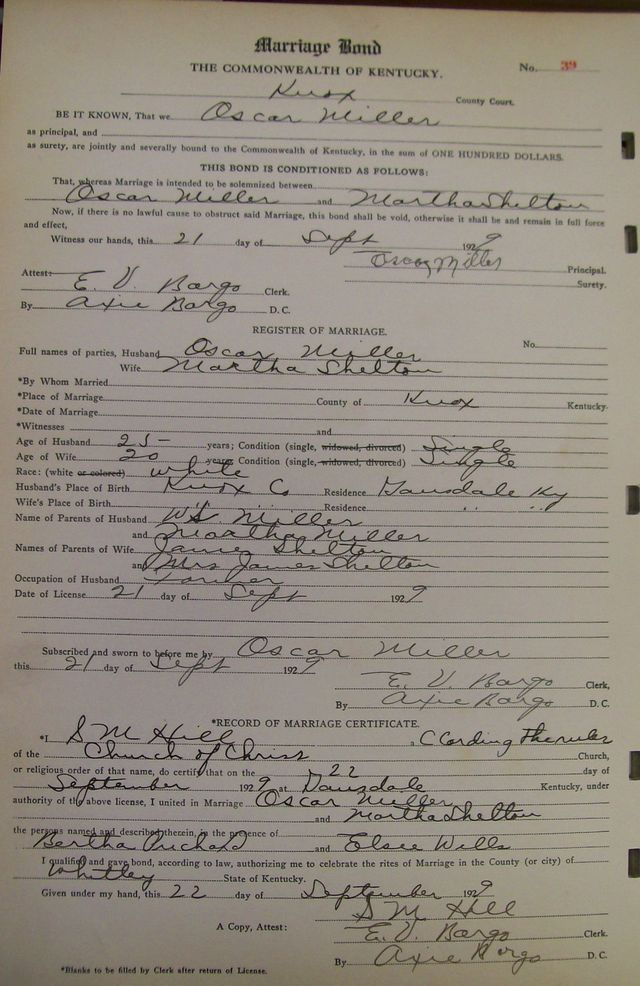 Marriage Bond
THE COMMONWEALTH OF KENTUCKY.
No. 39
Knox County Court.
BE IT KNOWN, That we Oscar Miller
as principal, and
as surety, are jointly and severally bound to the Commonwealth of Kentucky, in the sum of ONE HUNDRED DOLLARS.
THIS BOND IS CONDITIONED AS FOLLOWS:
That, whereas Marriage is intended to be solemnized between
Oscar Miller and Martha Shelton
Now, if there is no lawful cause to obstruct said Marriage, this bond shall be void, otherwise it shall be and remain in full force
and effect,
Witness our hands, this 21 day of Sept 1929
Oscar Miller Principal.
Surety.
Attest: E. V. Bargo Clerk.
By Axie Bargo D. C.
REGISTER OF MARRIAGE.
Full names of parties, Husband Oscar Miller No.
Wife Martha Shelton
*By Whom Married
*Place of Marriage County of Knox Kentucky.
*Date of Marriage
*Witnesses and
Age of Husband 25 years; Condition (single, widowed, divorced) Single
Age of Wife 20 years; Condition (single, widowed, divorced) Single
Race: (white or colored) white
Husband's Place of Birth Knox Co Residence Gausdale Ky
Wife's Place of Birth Residence " "
Name of Parents of Husband W S. Miller
and Martha Miller
Names of Parents of Wife James Shelton
and Mrs James Shelton
Occupation of Husband Farmer
Date of License 21 day of Sept 1929
Subscribed and sworn to before me by Oscar Miller
this 21 day of Sept 1929
E. V. Bargo Clerk,
By Axie Bargo D. C.
*RECORD OF MARRIAGE CERTIFICATE.
*I S M Hill, Ccording The rules
of the Church of Christ Church,
or religious order of that name, do certify that on the 22 day of
September 1929 at Gausdale Kentucky, under
authority of the above license, I united in Marriage Oscar Miller
and Martha Shelton
the persons named and described therein, in the presence of
Bertha Prichard and Elsee Wills
I qualified and gave bond, according to law, authorizing me to celebrate the rites of Marriage in the County (or city) of
Whitley State of Kentucky.
Given under my hand, this 22 day of September 1929
S M Hill
A Copy, Attest: E. V. Bargo Clerk.
By Axie Bargo D. C.
*Blanks to be filled by Clerk after return of License.